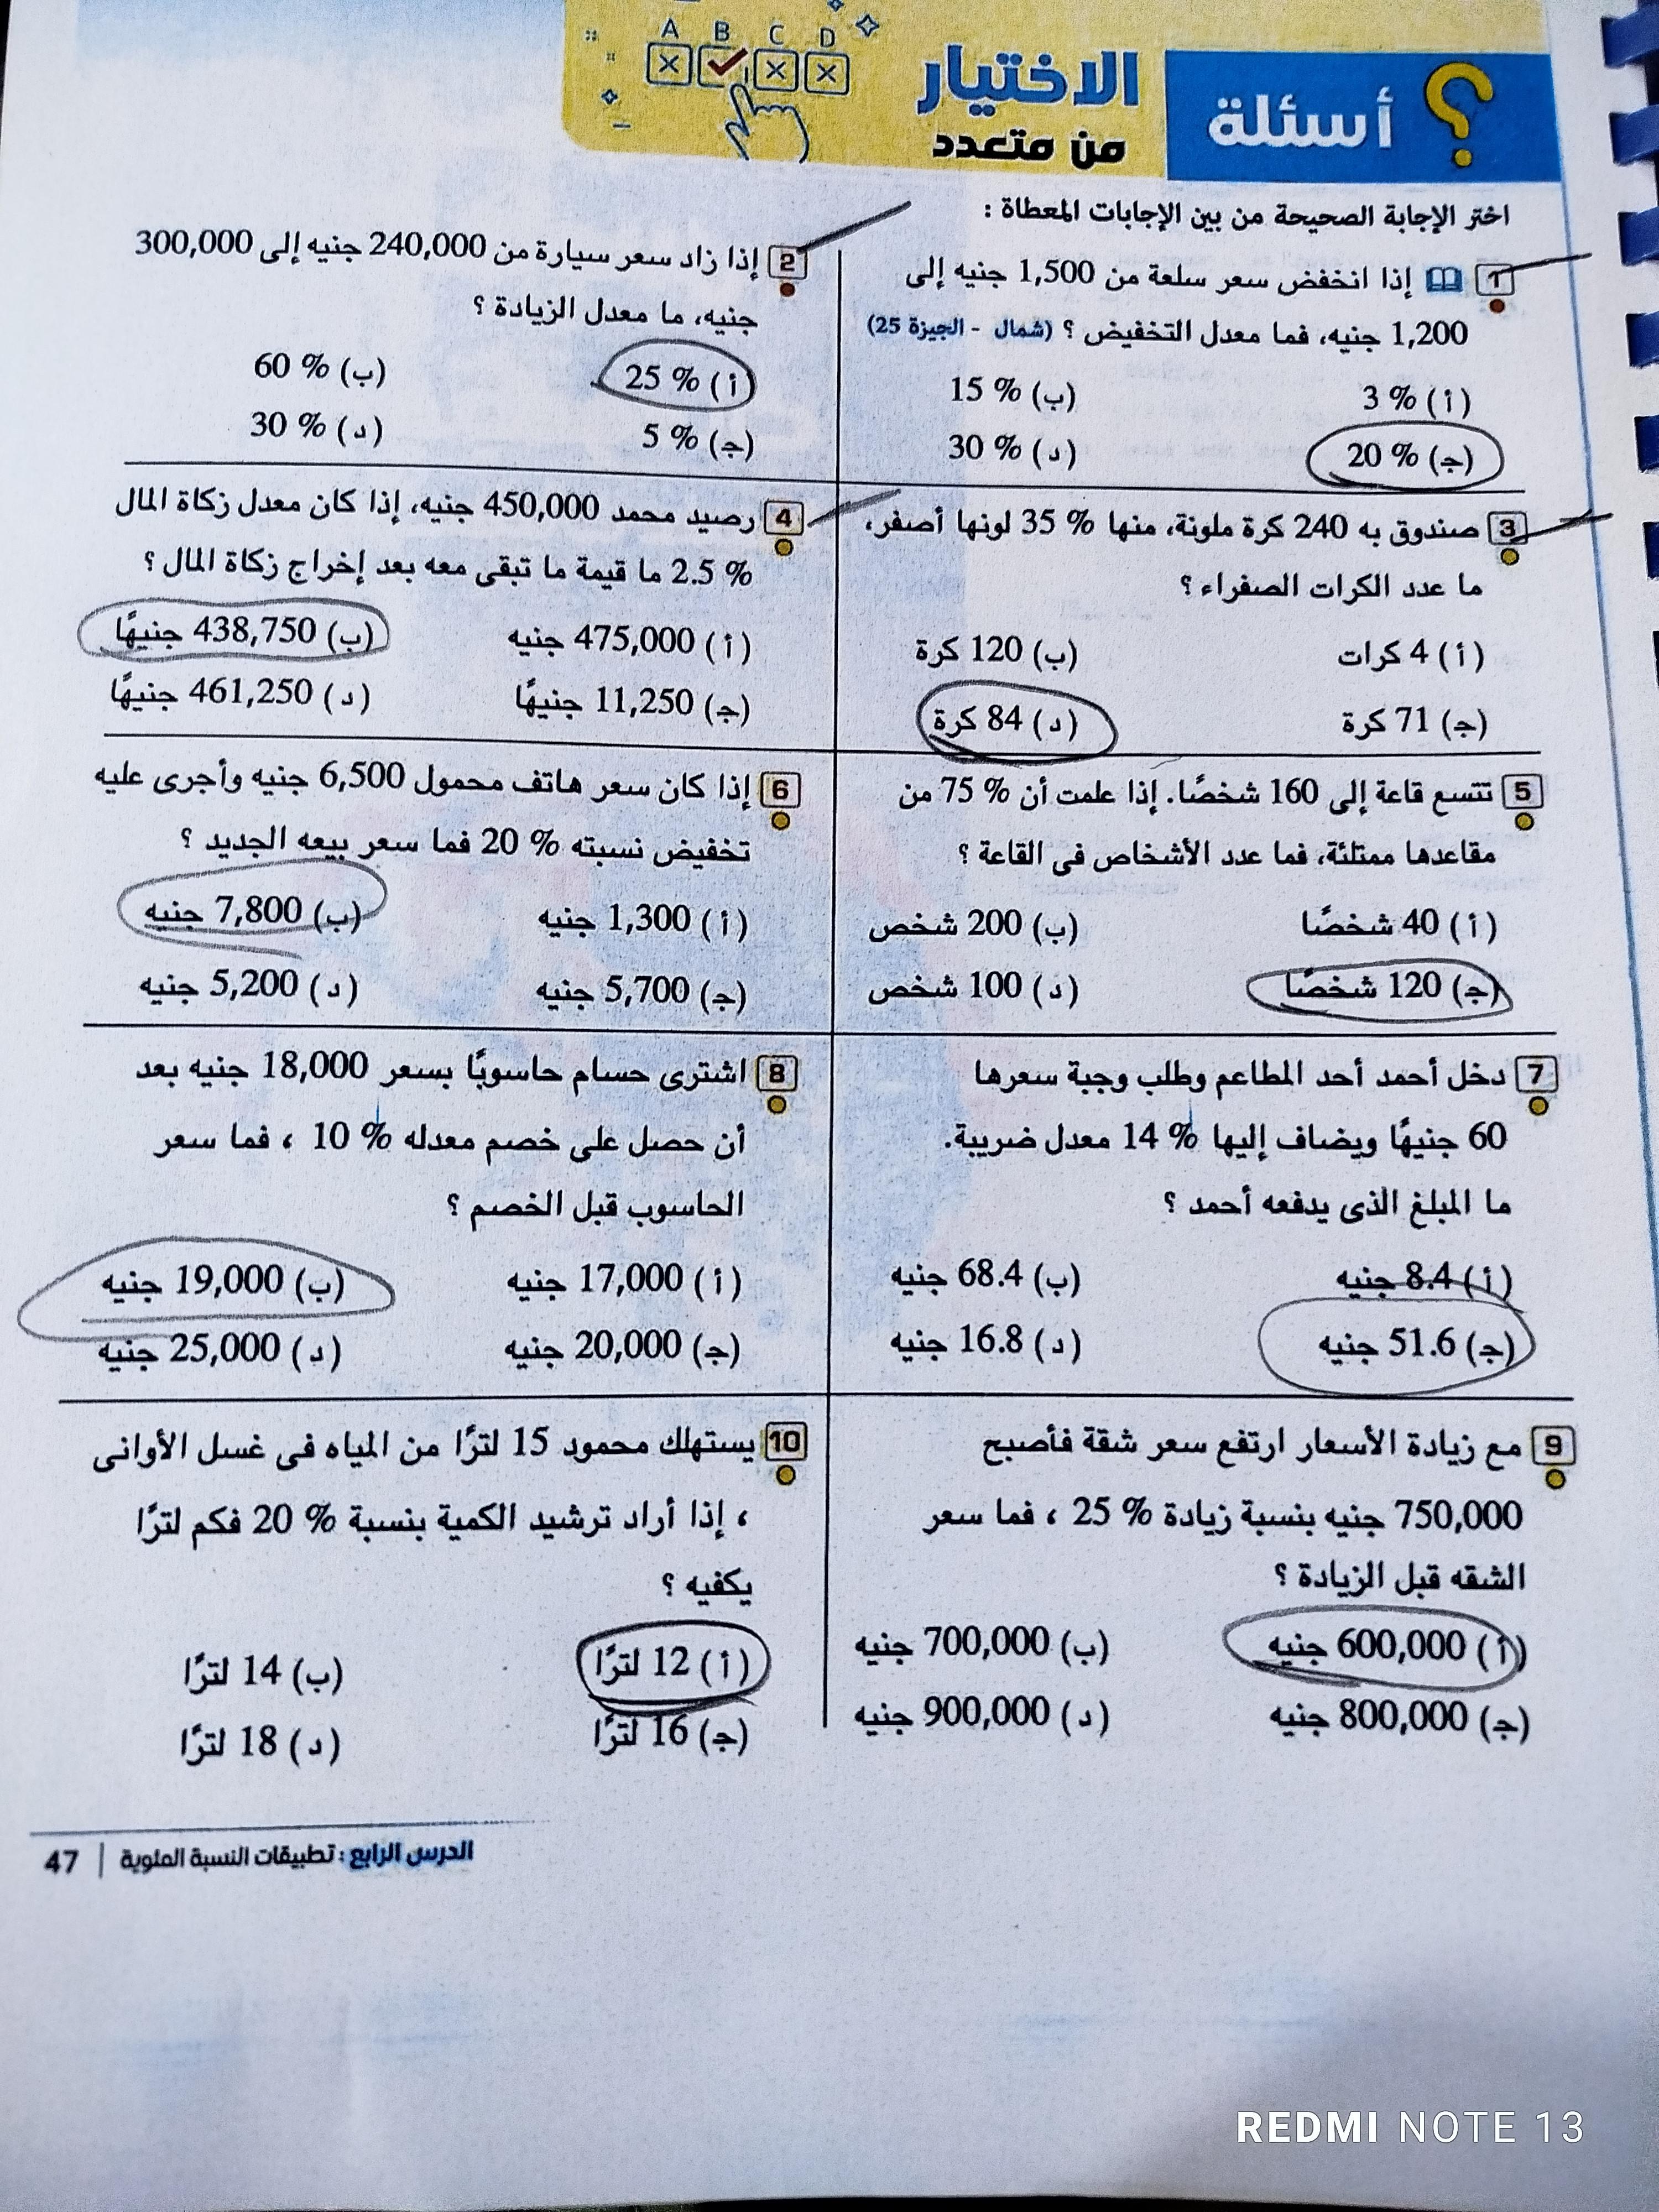 A B C D
؟ أسئلة
الاختيار
من متعدد
اختر الإجابة الصحيحة من بين الإجابات المعطاة :
1 إذا انخفض سعر سلعة من 1,500 جنيه إلى
1,200 جنيه، فما معدل التخفيض ؟ (شمال - الجيزة 25)
(أ) 3 % (ب) 15 %
(ج) 20 % (د) 30 %
2 إذا زاد سعر سيارة من 240,000 جنيه إلى 300,000
جنيه، ما معدل الزيادة ؟
(أ) 25 % (ب) 60 %
(ج) 5 % (د) 30 %
3 صندوق به 240 كرة ملونة، منها 35 % لونها أصفر،
ما عدد الكرات الصفراء ؟
(أ) 4 كرات (ب) 120 كرة
(ج) 71 كرة (د) 84 كرة
4 رصيد محمد 450,000 جنيه، إذا كان معدل زكاة المال
2.5 % ما قيمة ما تبقى معه بعد إخراج زكاة المال ؟
(أ) 475,000 جنيه (ب) 438,750 جنيهًا
(ج) 11,250 جنيهًا (د) 461,250 جنيهًا
5 تتسع قاعة إلى 160 شخصًا. إذا علمت أن 75 % من
مقاعدها ممتلئة، فما عدد الأشخاص فى القاعة ؟
(أ) 40 شخصًا (ب) 200 شخص
(ج) 120 شخصًا (د) 100 شخص
6 إذا كان سعر هاتف محمول 6,500 جنيه وأجرى عليه
تخفيض نسبته 20 % فما سعر بيعه الجديد ؟
(أ) 1,300 جنيه (ب) 7,800 جنيه
(ج) 5,700 جنيه (د) 5,200 جنيه
7 دخل أحمد أحد المطاعم وطلب وجبة سعرها
60 جنيهًا ويضاف إليها 14 % معدل ضريبة.
ما المبلغ الذى يدفعه أحمد ؟
(أ) 8.4 جنيه (ب) 68.4 جنيه
(ج) 51.6 جنيه (د) 16.8 جنيه
8 اشترى حسام حاسوبًا بسعر 18,000 جنيه بعد
أن حصل على خصم معدله 10 % ، فما سعر
الحاسوب قبل الخصم ؟
(أ) 17,000 جنيه (ب) 19,000 جنيه
(ج) 20,000 جنيه (د) 25,000 جنيه
9 مع زيادة الأسعار ارتفع سعر شقة فأصبح
750,000 جنيه بنسبة زيادة 25 % ، فما سعر
الشقه قبل الزيادة ؟
(أ) 600,000 جنيه (ب) 700,000 جنيه
(ج) 800,000 جنيه (د) 900,000 جنيه
10 يستهلك محمود 15 لترًا من المياه فى غسل الأوانى
، إذا أراد ترشيد الكمية بنسبة 20 % فكم لترًا
يكفيه ؟
(أ) 12 لترًا (ب) 14 لترًا
(ج) 16 لترًا (د) 18 لترًا
الدرس الرابع : تطبيقات النسبة المئوية | 47
REDMI NOTE 13